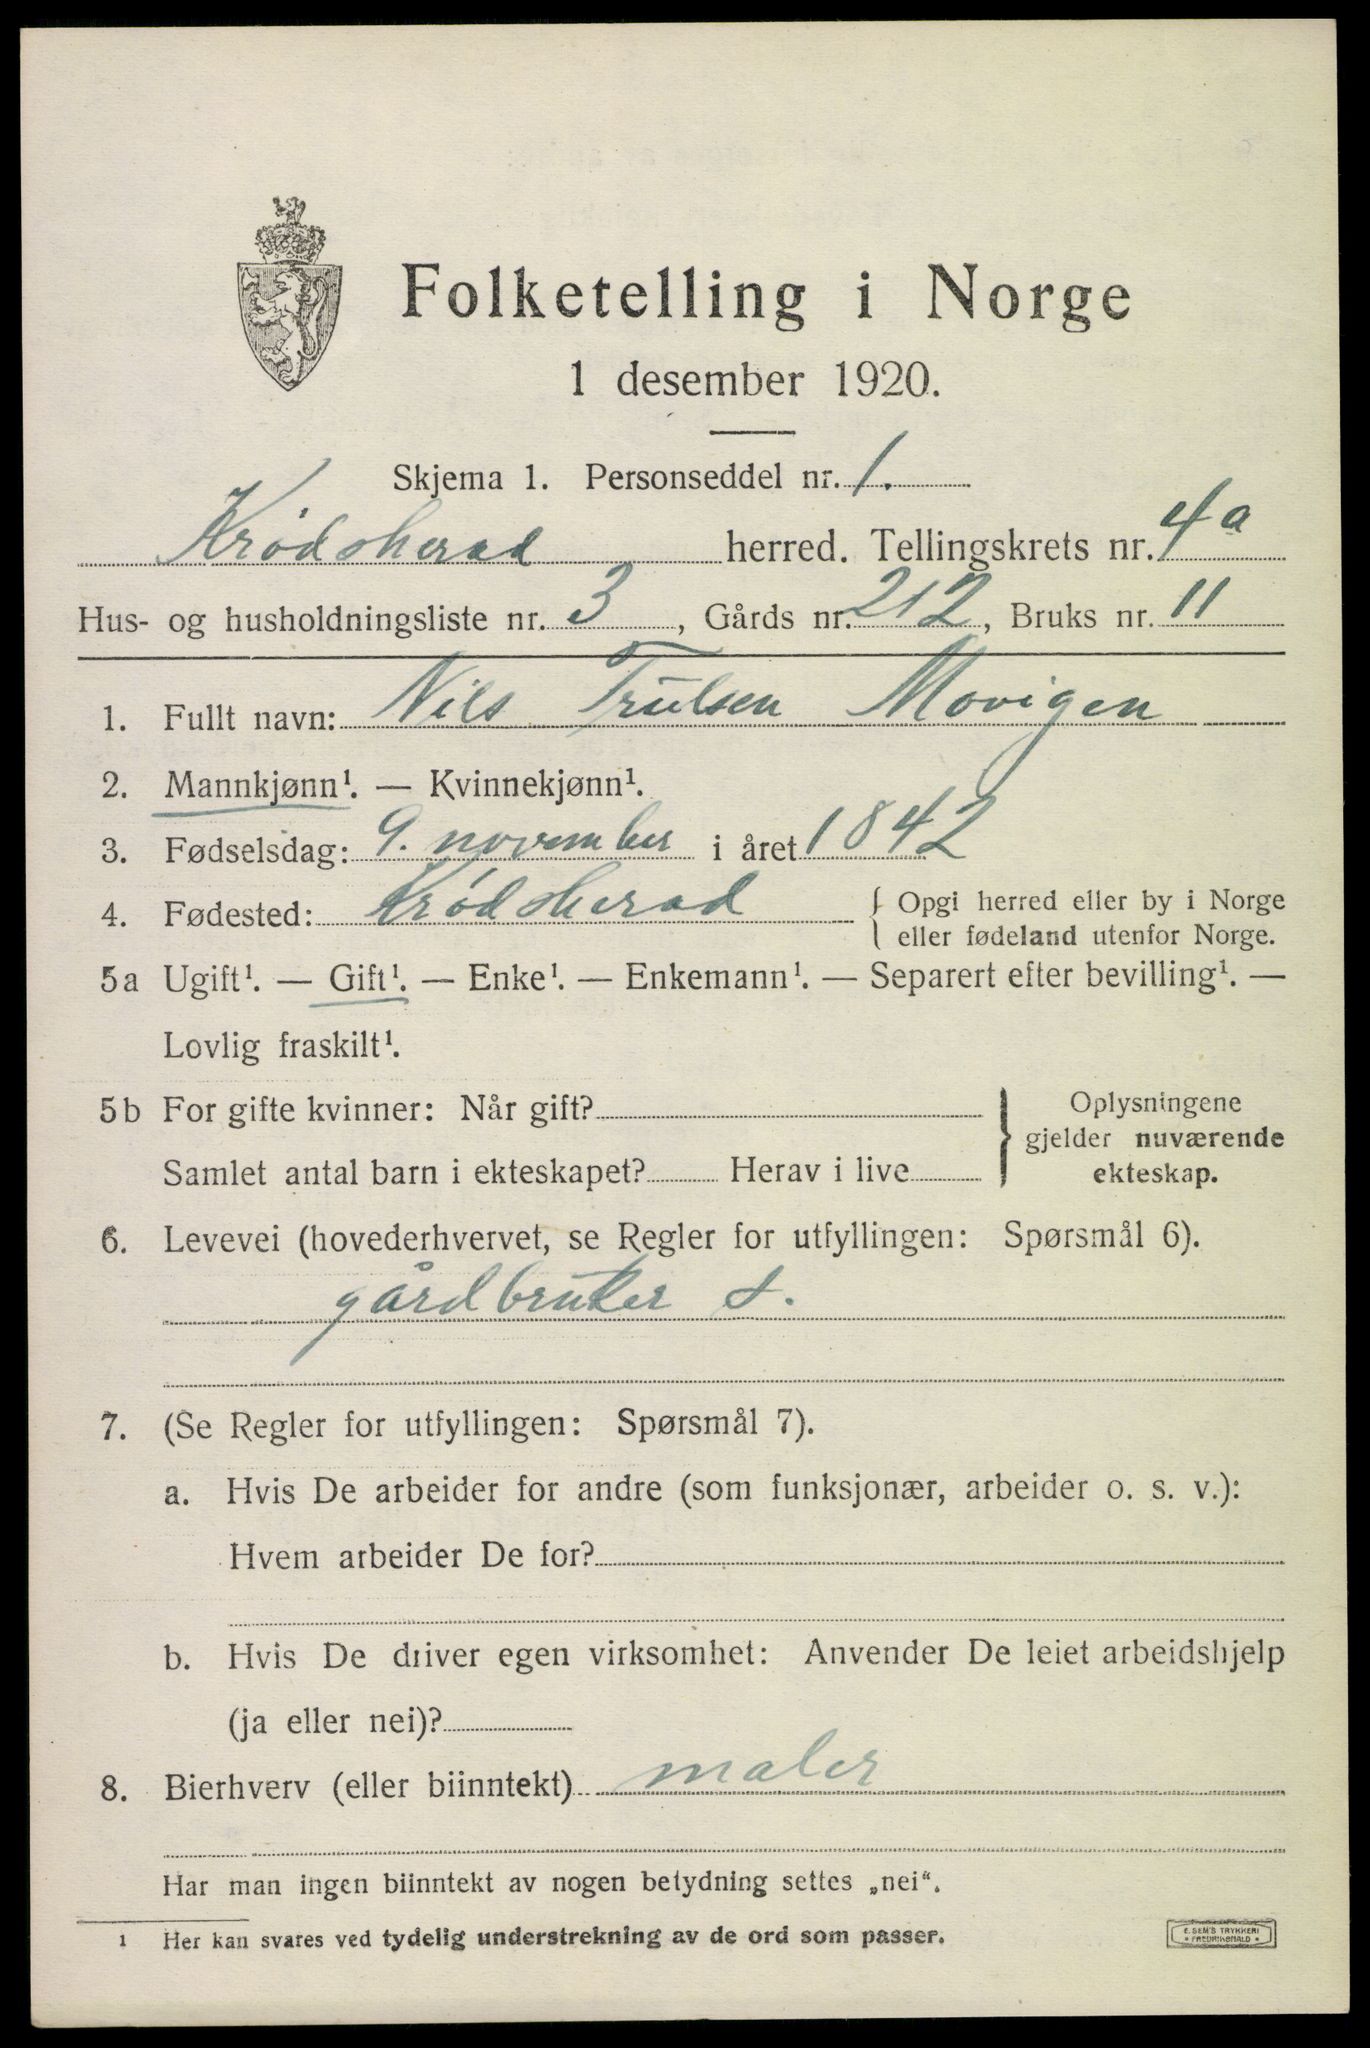 Folketelling i Norge
1 desember 1920.
Skjema 1. Personseddel nr. 1.
Krødsherad herred. Tellingskrets nr. 4a
Hus- og husholdningsliste nr. 3, Gårds nr. 212, Bruks nr. 11
1. Fullt navn: Nils Trulsen Movigen
2. Mannkjønn¹. — Kvinnekjønn¹.
3. Fødselsdag: 9. november i året 1842
4. Fødested: Krødsherad { Opgi herred eller by i Norge
eller fødeland utenfor Norge.
5a Ugift¹. — Gift¹. — Enke¹. — Enkemann¹. — Separert efter bevilling¹. —
Lovlig fraskilt¹.
5b For gifte kvinner: Når gift? } Oplysningene
gjelder nuværende
Samlet antal barn i ekteskapet? Herav i live ekteskap.
6. Levevei (hovederhvervet, se Regler for utfyllingen: Spørsmål 6).
gårdbruker s.
7. (Se Regler for utfyllingen: Spørsmål 7).
a. Hvis De arbeider for andre (som funksjonær, arbeider o. s. v.):
Hvem arbeider De for?
b. Hvis De driver egen virksomhet: Anvender De leiet arbeidshjelp
(ja eller nei)?
8. Bierhverv (eller biinntekt) maler
Har man ingen biinntekt av nogen betydning settes „nei".
1 Her kan svares ved tydelig understrekning av de ord som passer.
E. SEM'S TRYKKERI
FREDRIKSHALD